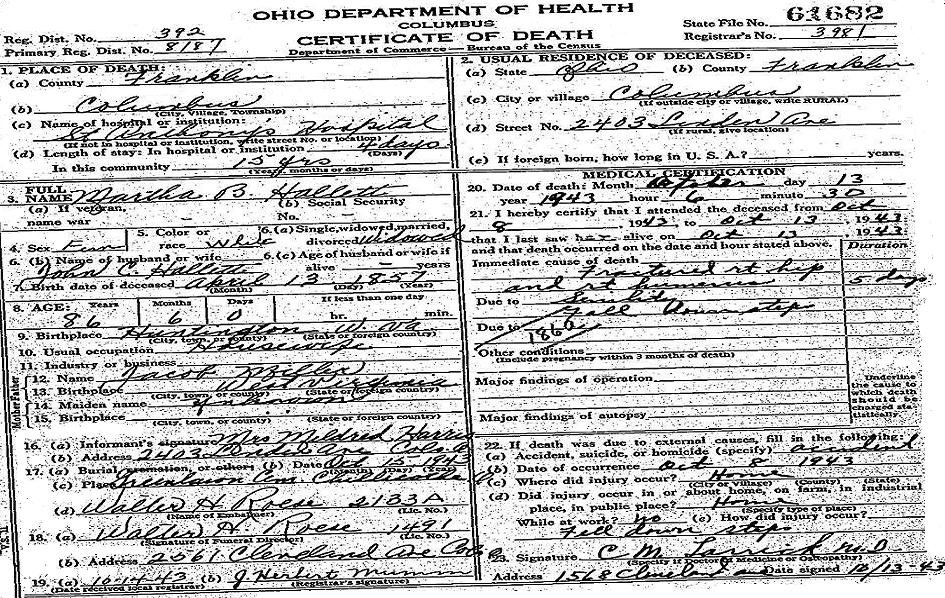 OHIO DEPARTMENT OF HEALTH
COLUMBUS
CERTIFICATE OF DEATH
Department of Commerce—Bureau of the Census
Reg. Dist. No. 392
Primary Reg. Dist. No. 8187
State File No. 61682
Registrar's No. 3981
1. PLACE OF DEATH:
(a) County Franklin
(b) Columbus
(City, Village, Township)
(c) Name of hospital or institution:
St Anthonys Hospital
(If not in hospital or institution, write street No. or location)
(d) Length of stay: In hospital or institution 4 days
(Days)
In this community 15 yrs
(Years, months or days)
2. USUAL RESIDENCE OF DECEASED:
(a) State Ohio (b) County Franklin
(c) City or village Columbus
(If outside city or village, write RURAL)
(d) Street No. 2403 Linden Ave
(If rural, give location)
(e) If foreign born, how long in U. S. A.? years.
3. FULL NAME Martha B. Hallett
(a) If veteran, name war
(b) Social Security No.
4. Sex Fem
5. Color or race White
6. (a) Single, widowed, married, divorced Widowed
6. (b) Name of husband or wife John C. Hallett
6. (c) Age of husband or wife if alive — years
7. Birth date of deceased April 13
(Month) (Day) (Year)
8. AGE: Years Months Days If less than one day
86 6 0 hr. min.
9. Birthplace Huntington W. Va
(City, town, or county) (State or foreign country)
10. Usual occupation Housewife
11. Industry or business
Mother Father
12. Name Jacob
13. Birthplace West Virginia
(City, town, or county) (State or foreign country)
14. Maiden name
15. Birthplace
(City, town, or county) (State or foreign country)
16. (a) Informant's signature Mrs Mildred Harris
(b) Address 2403 Linden Ave Cols.
17. (a) Burial, cremation, or other; (b) Date Oct 15 1943
(Month) (Day) (Year)
(c) Place Greenlawn Cem Chillicothe
(d) Walter H. Roese 2133A
(Name of Embalmer) (Lic. No.)
18. (a) Walter H. Roese 1491
(Signature of Funeral Director) (Lic. No.)
(b) Address 2061 Cleveland Ave Cols
19. (a) 10-14-43 (b) J Herbert
(Date received local registrar) (Registrar's signature)
MEDICAL CERTIFICATION
20. Date of death: Month October day 13
year 1943 hour 6 minute 30
21. I hereby certify that I attended the deceased from Oct
8, 1943, to Oct 13, 1943
that I last saw her alive on Oct 13, 1943
and that death occurred on the date and hour stated above.
Duration
Immediate cause of death
Fractured rt hip
and rt humerus 5 days
Due to Senility
Fall down steps
Due to
186a
Other conditions
(Include pregnancy within 3 months of death)
Major findings of operation
Major findings of autopsy
Underline the cause to which death should be charged statistically.
22. If death was due to external causes, fill in the following:
(a) Accident, suicide, or homicide (specify) accident
(b) Date of occurrence Oct 8 1943
(c) Where did injury occur? Home
(City or Village) (County) (State)
(d) Did injury occur in or about home, on farm, in industrial
place, in public place? Home
(Specify type of place)
While at work? No (e) How did injury occur?
Fell down steps
23. Signature C. M.
(Specify if Doctor of Medicine or Osteopathy)
Address 1568 Cleveland Ave Date signed 10/13-43